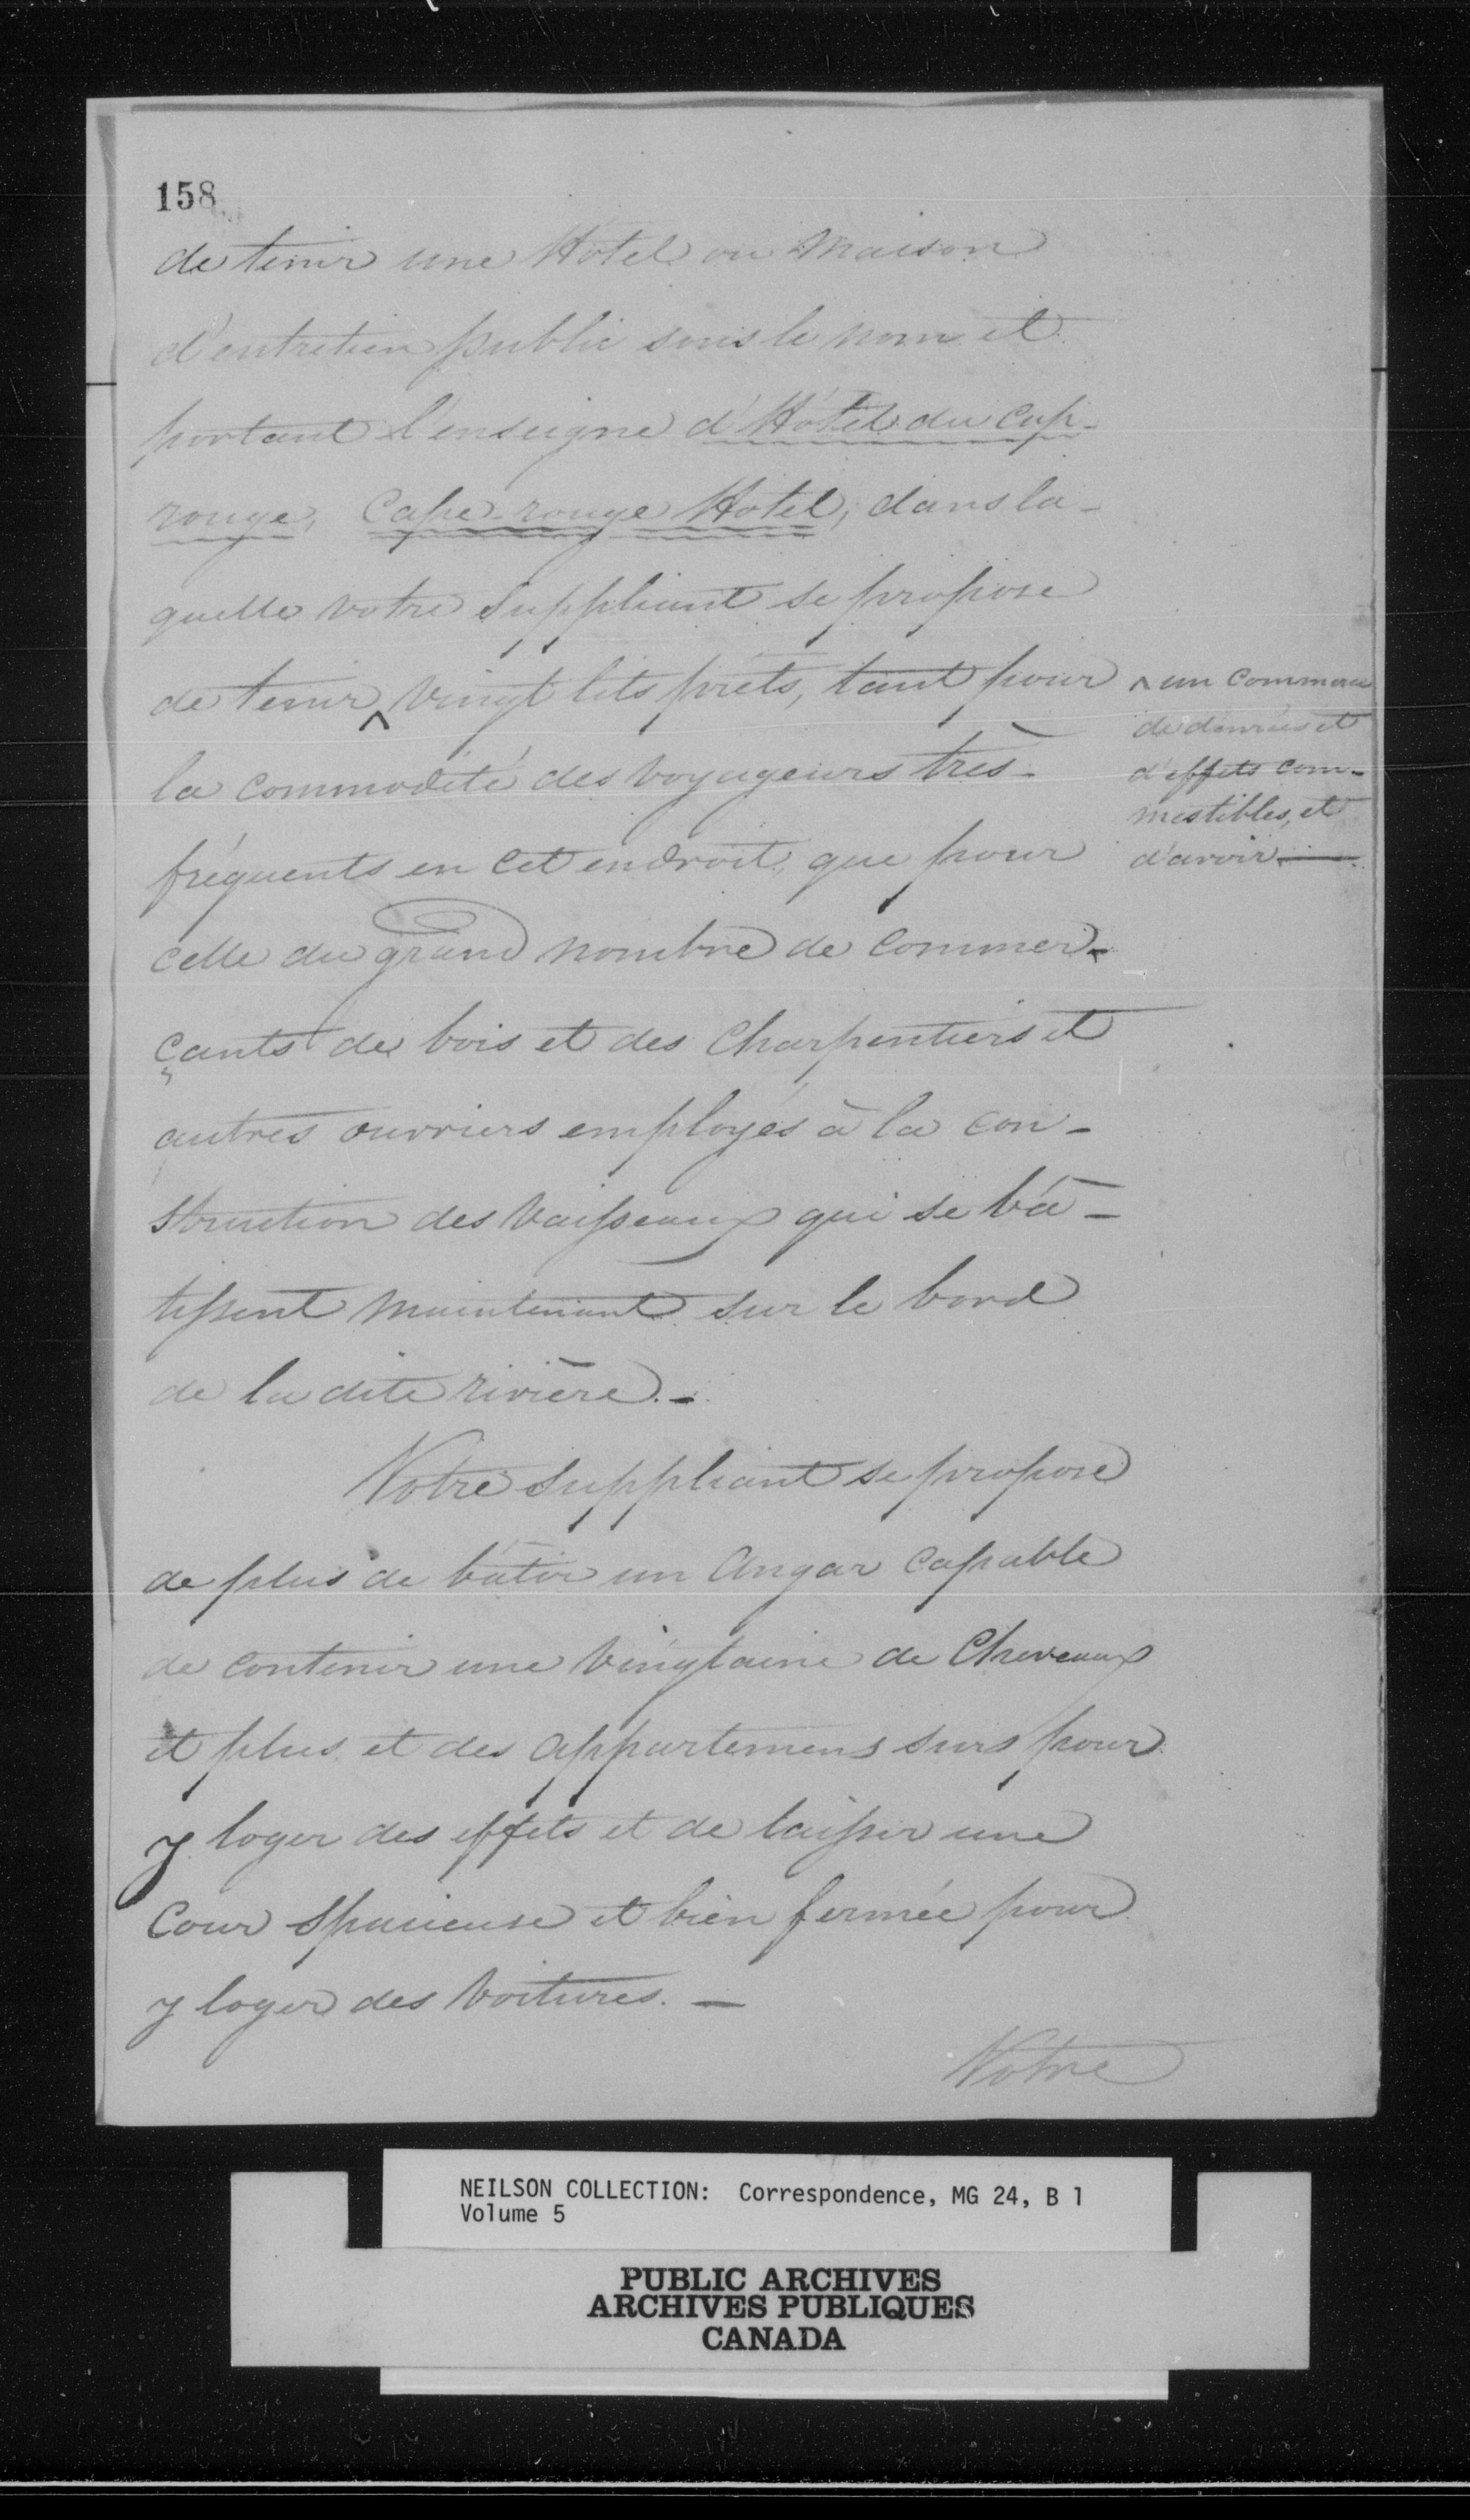 158
de tenir une Hôtel ou Maison
d'entretien public sous le nom et
portant l'enseigne d'Hôtel du Cap-
rouge, Cape-rouge Hotel, dans la-
quelle votre Suppliant se propose
de tenir ^ vingt lits prêts, tant pour
la commodité des voyageurs très-
fréquents en cet endroit, que pour
celle du grand nombre de commer-
çants de bois et des Charpentiers et
autres ouvriers employés à la con-
struction des vaisseaux qui se bâ-
tissent maintenant sur le bord
de la dite rivière.-
^ un commerce
de denrées et
d'effets com-
mestibles, et
d'avoir
Votre Suppliant se propose
de plus de bâtir un Angar capable
de contenir une vingtaine de Cheveaux
et plus, et des appartemens surs pour
y loger des effets et de laisser une
Cour spacieuse et bien fermée pour
y loger des voitures. —
Votre
NEILSON COLLECTION: Correspondence, MG 24, B 1
Volume 5
PUBLIC ARCHIVES
ARCHIVES PUBLIQUES
CANADA